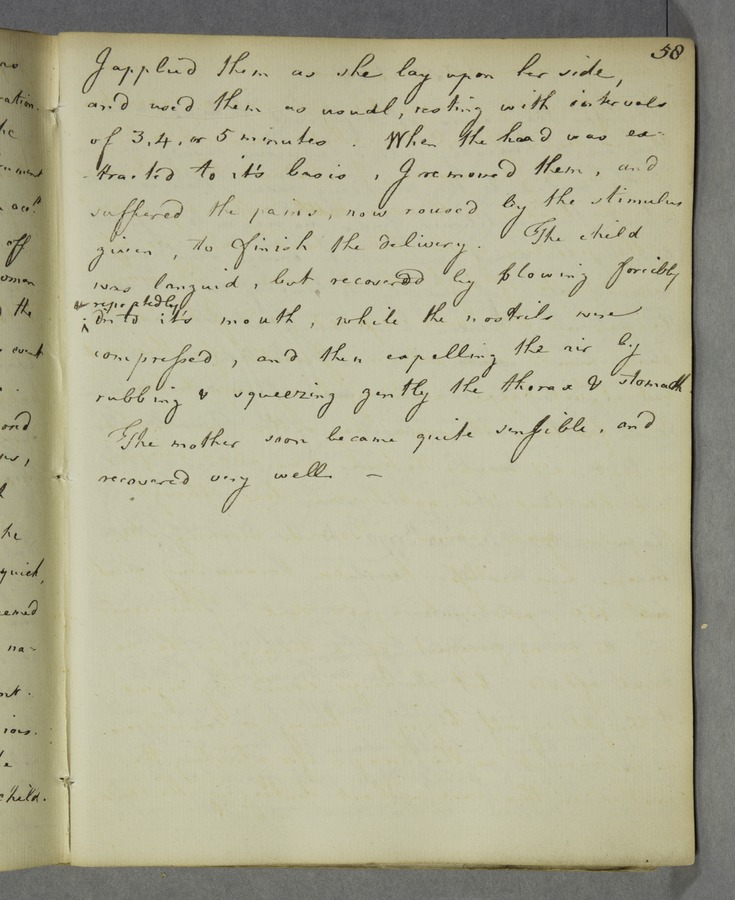 58
I applied them as she lay upon her side,
and used them as usual, resting with intervals
of 3, 4, or 5 minutes. When the head was ex-
-tracted to it's basis, I removed them, and
suffered the pains, now roused by the stimulus
given, to finish the delivery. The child
was languid, but recovered by blowing forcibly
& repeatedly
into it's mouth, while the nostrils were
compressed, and then expelling the air by
rubbing & squeezing gently the thorax & stomach.
The mother soon became quite sensible, and
recovered very well —
ation.
off
woman
the
event
and
he
quick,
na-
child.